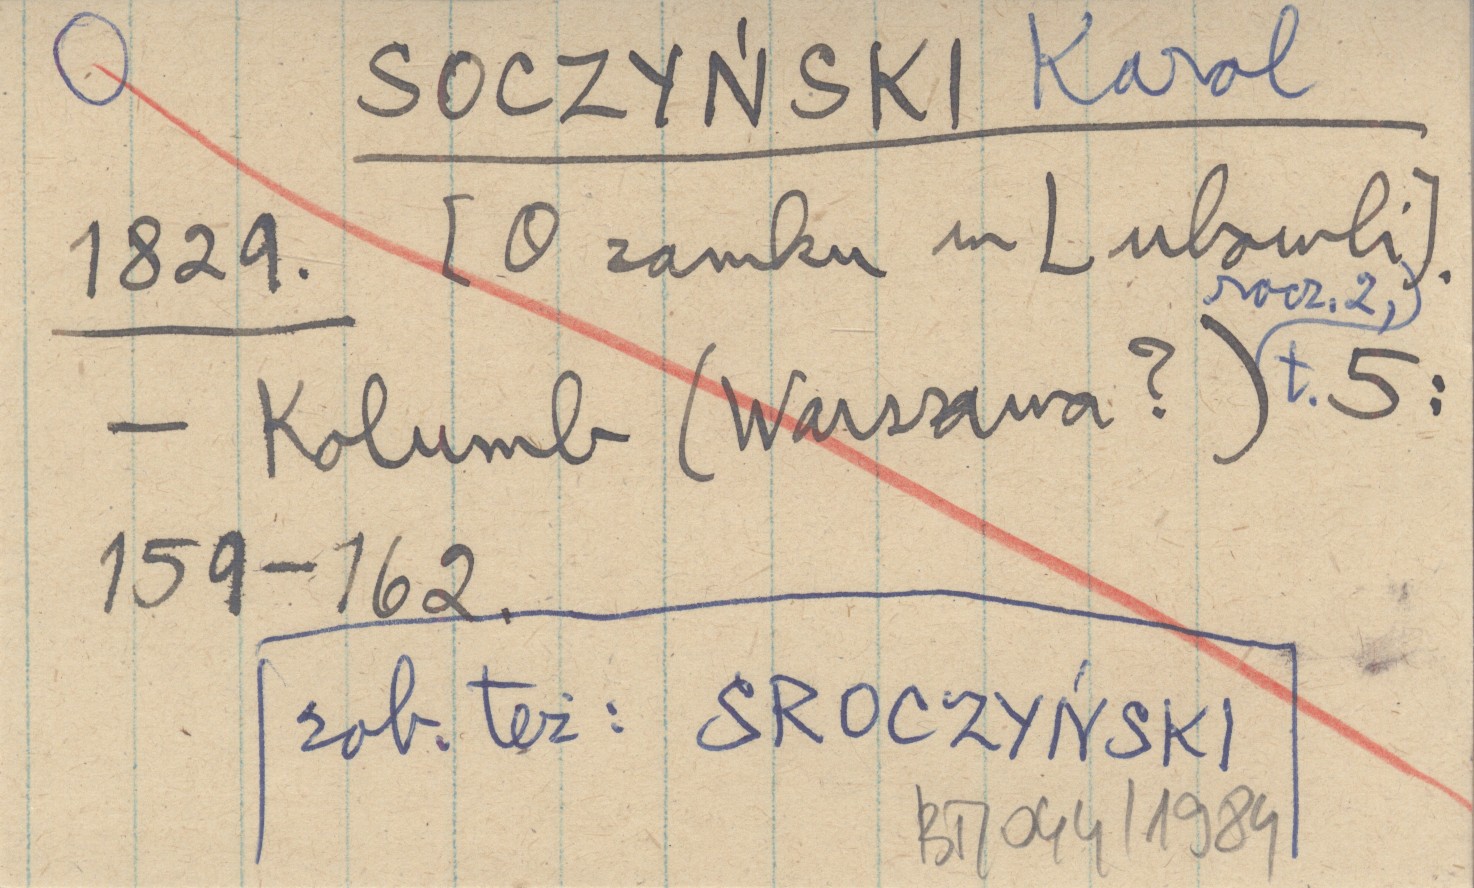 SOCZYŃSKI Karol
1829. [O zamku w Lubowli].
rocz. 2,
— Kolumb (Warszawa?) t. 5:
159–162.
zob. też: SROCZYŃSKI
BT/044/1984